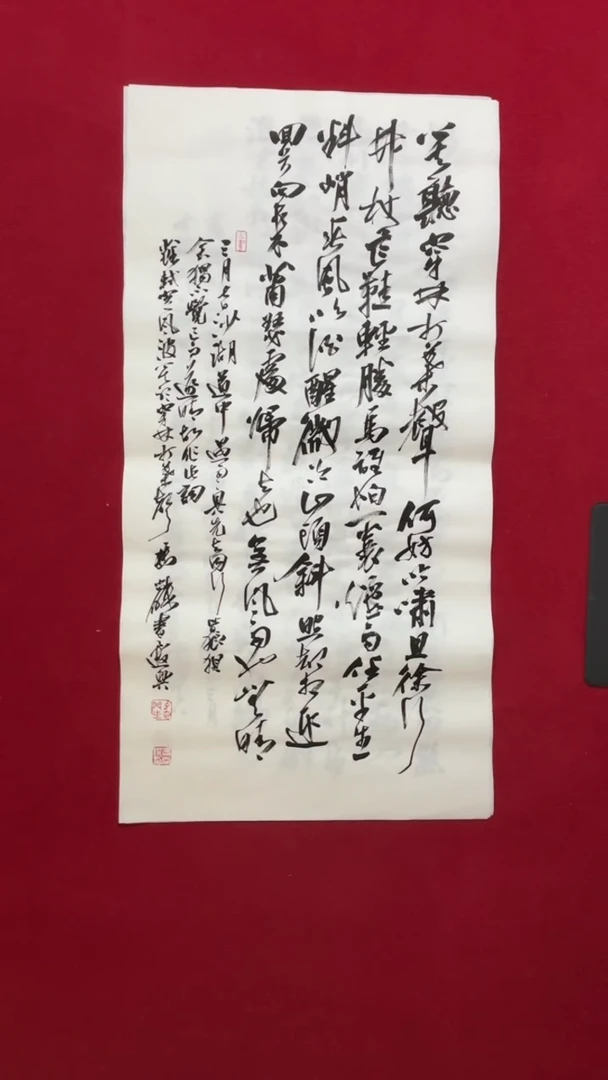 莫聽穿林打葉聲何妨吟嘯且徐行
竹杖芒鞋輕勝馬誰怕一蓑煙雨任平生
料峭春風吹酒醒微冷山頭斜照却相迎
回首向來蕭瑟處歸去也無風雨也無晴
三月七日沙湖道中遇雨雨具先去同行皆狼狽
余獨不覺已而遂晴故作此詞
蘇軾定風波莫聽穿林打葉聲 書遣興